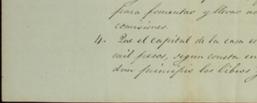 para fomentar y llevar a
comisiones.
4. Que el capital de la casa es
mil pesos, segun consta en
dan principio los libros